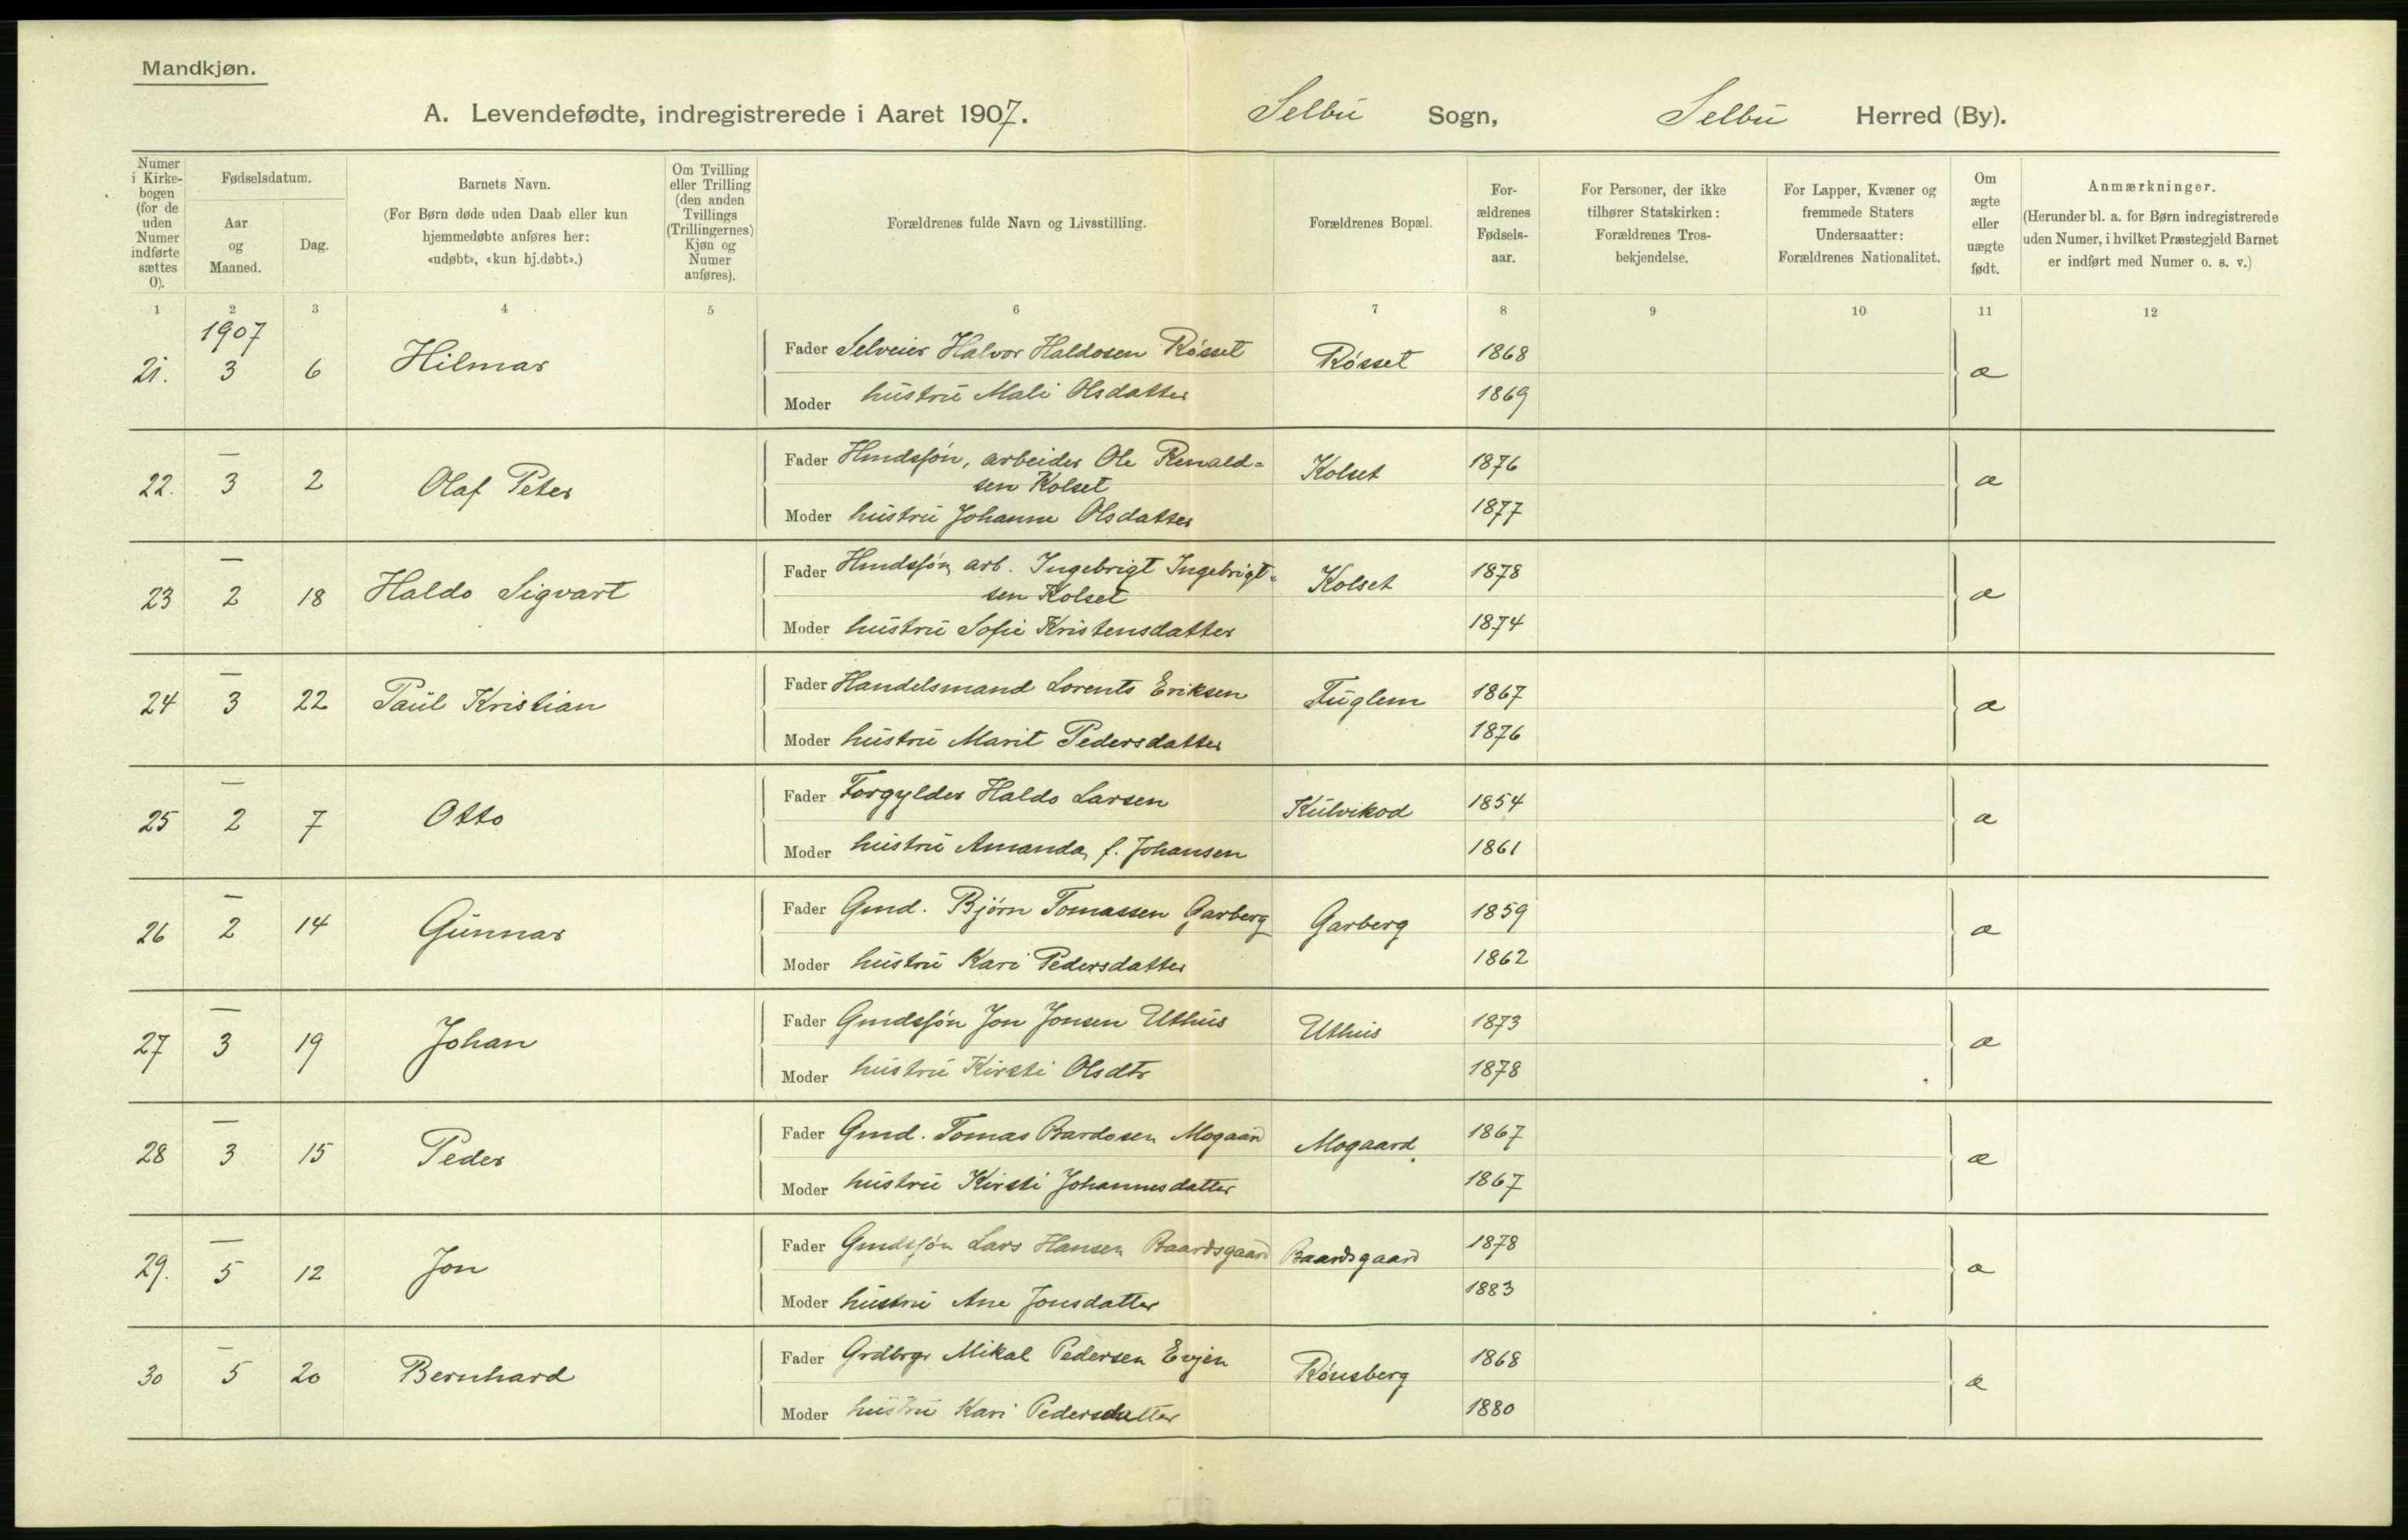 Mandkjøn.
A. Levendefødte, indregistrerede i Aaret 1907. Selbu Sogn, Selbu Herred (By).
Numer i Kirke-bogen (for de uden Numer indførte sættes 0).
Fødselsdatum.
Aar og Maaned.
Dag.
Barnets Navn.
(For Børn døde uden Daab eller kun hjemmedøbte anføres her: «udøbt», «kun hj.døbt».)
Om Tvilling eller Trilling (den anden Tvillings (Trillingernes) Kjøn og Numer anføres).
Forældrenes fulde Navn og Livsstilling.
Forældrenes Bopæl.
For-ældrenes Fødsels-aar.
For Personer, der ikke tilhører Statskirken: Forældrenes Tros-bekjendelse.
For Lapper, Kvæner og fremmede Staters Undersaatter: Forældrenes Nationalitet.
Om ægte eller uægte født.
Anmærkninger.
(Herunder bl. a. for Børn indregistrerede uden Numer, i hvilket Præstegjeld Barnet er indført med Numer o. s. v.)
1 2 3 4 5 6 7 8 9 10 11 12
1907
21. 3 6 Hilmar Fader Selveier Halvor Haldosen Rösset Rösset 1868 æ
Moder hustru Mali Olsdatter 1869
22. — 3 2 Olaf Peter Fader Hmdssön, arbeider Ole Renald= Kolset 1876 æ
sen Kolset
Moder hustru Johanne Olsdatter 1877
23 — 2 18 Haldo Sigvart Fader Hmdssön, arb. Ingebrigt Ingebrigt= Kolset 1878 æ
sen Kolset
Moder hustru Sofie Kristensdatter 1874
24 — 3 22 Paul Kristian Fader Handelsmand Lorents Eriksen Fuglem 1867 æ
Moder hustru Marit Pedersdatter 1876
25 — 2 7 Otto Fader Forgylder Haldo Larsen Kulvikod 1854 æ
Moder hustru Amanda, f. Johansen 1861
26 — 2 14 Gunnar Fader Gmd. Björn Tomassen Garberg Garberg 1859 æ
Moder hustru Kari Pedersdatter 1862
27 — 3 19 Johan Fader Gmdssön Jon Jonsen Uthus Uthus 1873 æ
Moder hustru Kirsti Olsdtr 1878
28 — 3 15 Peder Fader Gmd. Tomas Bardosen Mogaard Mogaard. 1867 æ
Moder hustru Kirsti Johannesdatter 1867
29. — 5 12 Jon Fader Gmdssön Lars Hansen Baardsgaard Baardsgaard 1878 æ
Moder hustru Ane Jonsdatter 1883
30 — 5 20 Bernhard Fader Grdbrgr Mikal Pedersen Evjen Rönsberg 1868 æ
Moder hustru Kari Pedersdatter 1880